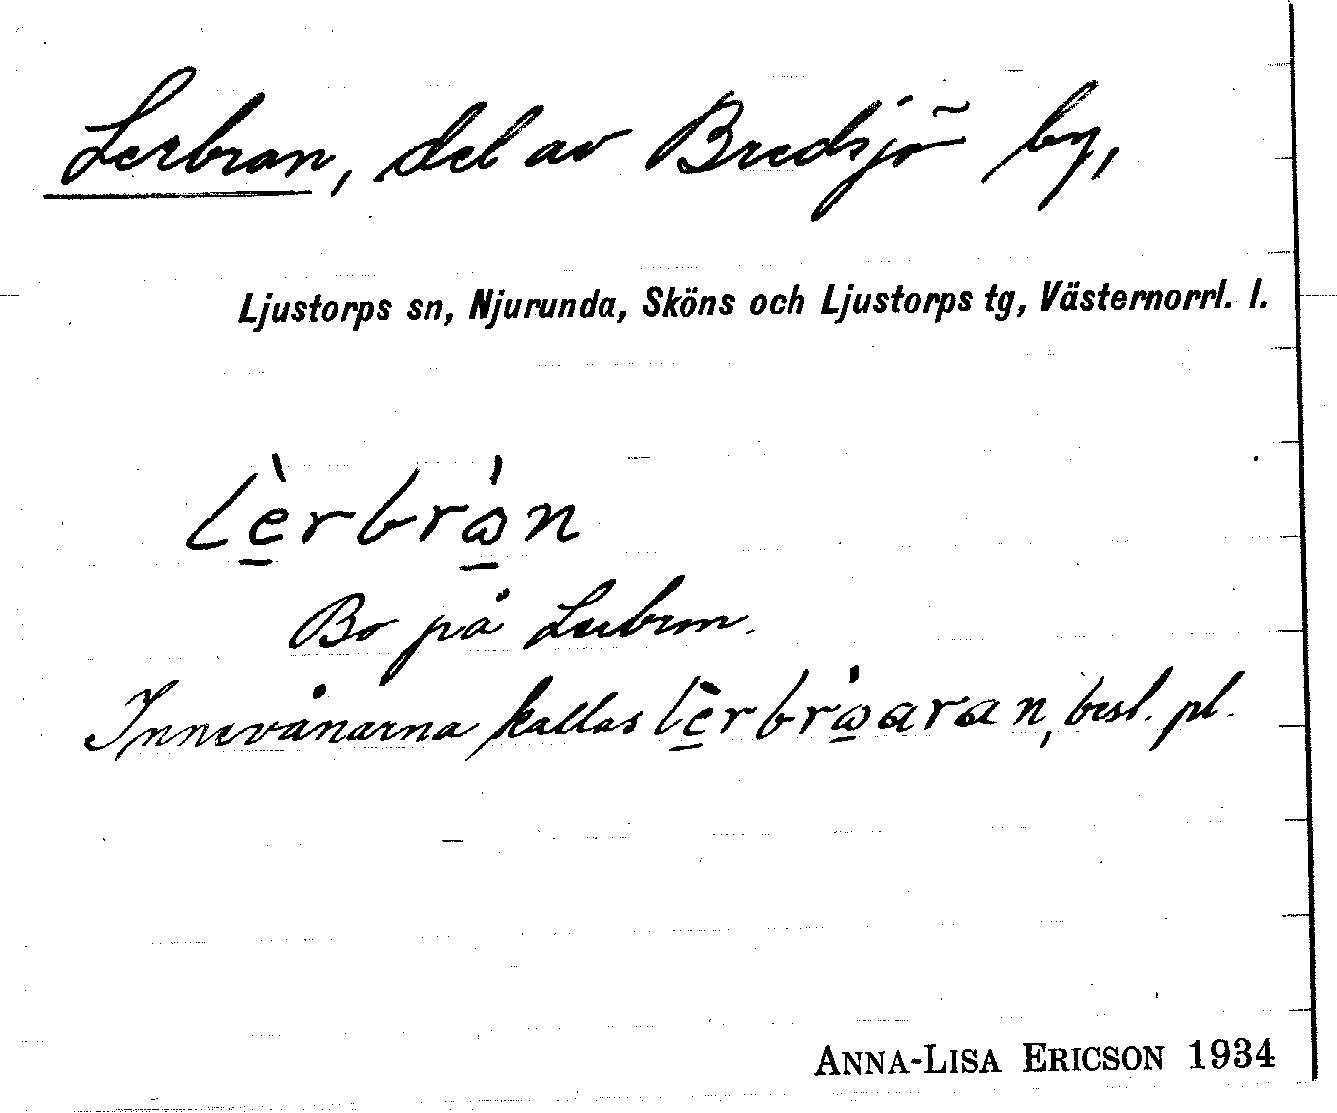 Lerbran, del av Bredsjö by,
Ljustorps sn, Njurunda, Sköns och Ljustorps tg, Västernorrl. l.
lè̱rbrὰ̱n
Bo på Lerbran.
Innevånarna kallas lè̱rbrὰ̱aran, best. pl.
ANNA-LISA ERICSON 1934